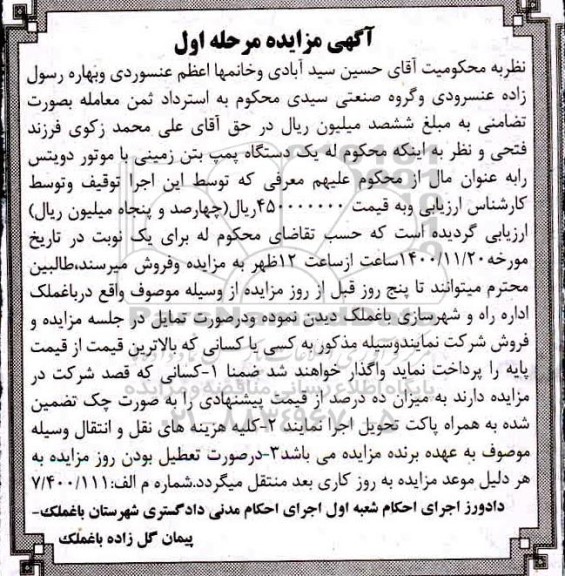 آگهی مزایده مرحله اول
نظربه محکومیت آقای حسین سید آبادی وخانمها اعظم عنسوردی وبهاره رسول
زاده عنسرودی وگروه صنعتی سیدی محکوم به استرداد ثمن معامله بصورت
تضامنی به مبلغ ششصد میلیون ریال در حق آقای علی محمد زکوی فرزند
فتحی و نظر به اینکه محکوم له یک دستگاه پمپ بتن زمینی با موتور دویتس
رابه عنوان مال از محکوم علیهم معرفی که توسط این اجرا توقیف وتوسط
کارشناس ارزیابی وبه قیمت ۴۵۰۰۰۰۰۰۰ریال(چهارصد و پنجاه میلیون ریال)
ارزیابی گردیده است که حسب تقاضای محکوم له برای یک نوبت در تاریخ
مورخه۱۴۰۰/۱۱/۲۰ساعت ازساعت ۱۲ظهر به مزایده وفروش میرسند،طالبین
محترم میتوانند تا پنج روز قبل از روز مزایده از وسیله موصوف واقع درباغملک
اداره راه و شهرسازی باغملک دیدن نموده ودرصورت تمایل در جلسه مزایده و
فروش شرکت نمایندوسیله مذکور به کسی یا کسانی که بالاترین قیمت از قیمت
پایه را پرداخت نماید واگذار خواهند شد ضمنا ۱-کسانی که قصد شرکت در
مزایده دارند به میزان ده درصد از قیمت پیشنهادی را به صورت چک تضمین
شده به همراه پاکت تحویل اجرا نمایند ۲-کلیه هزینه های نقل و انتقال وسیله
موصوف به عهده برنده مزایده می باشد۳-درصورت تعطیل بودن روز مزایده به
هر دلیل موعد مزایده به روز کاری بعد منتقل میگردد.شماره م الف:۷/۴۰۰/۱۱۱
دادورز اجرای احکام شعبه اول اجرای احکام مدنی دادگستری شهرستان باغملک-
پیمان گل زاده باغملک
پایگاه اطلاع رسانی مناقصه و مزایده
۰۲۱-۸۸۳۴۹۶۷۰-۵